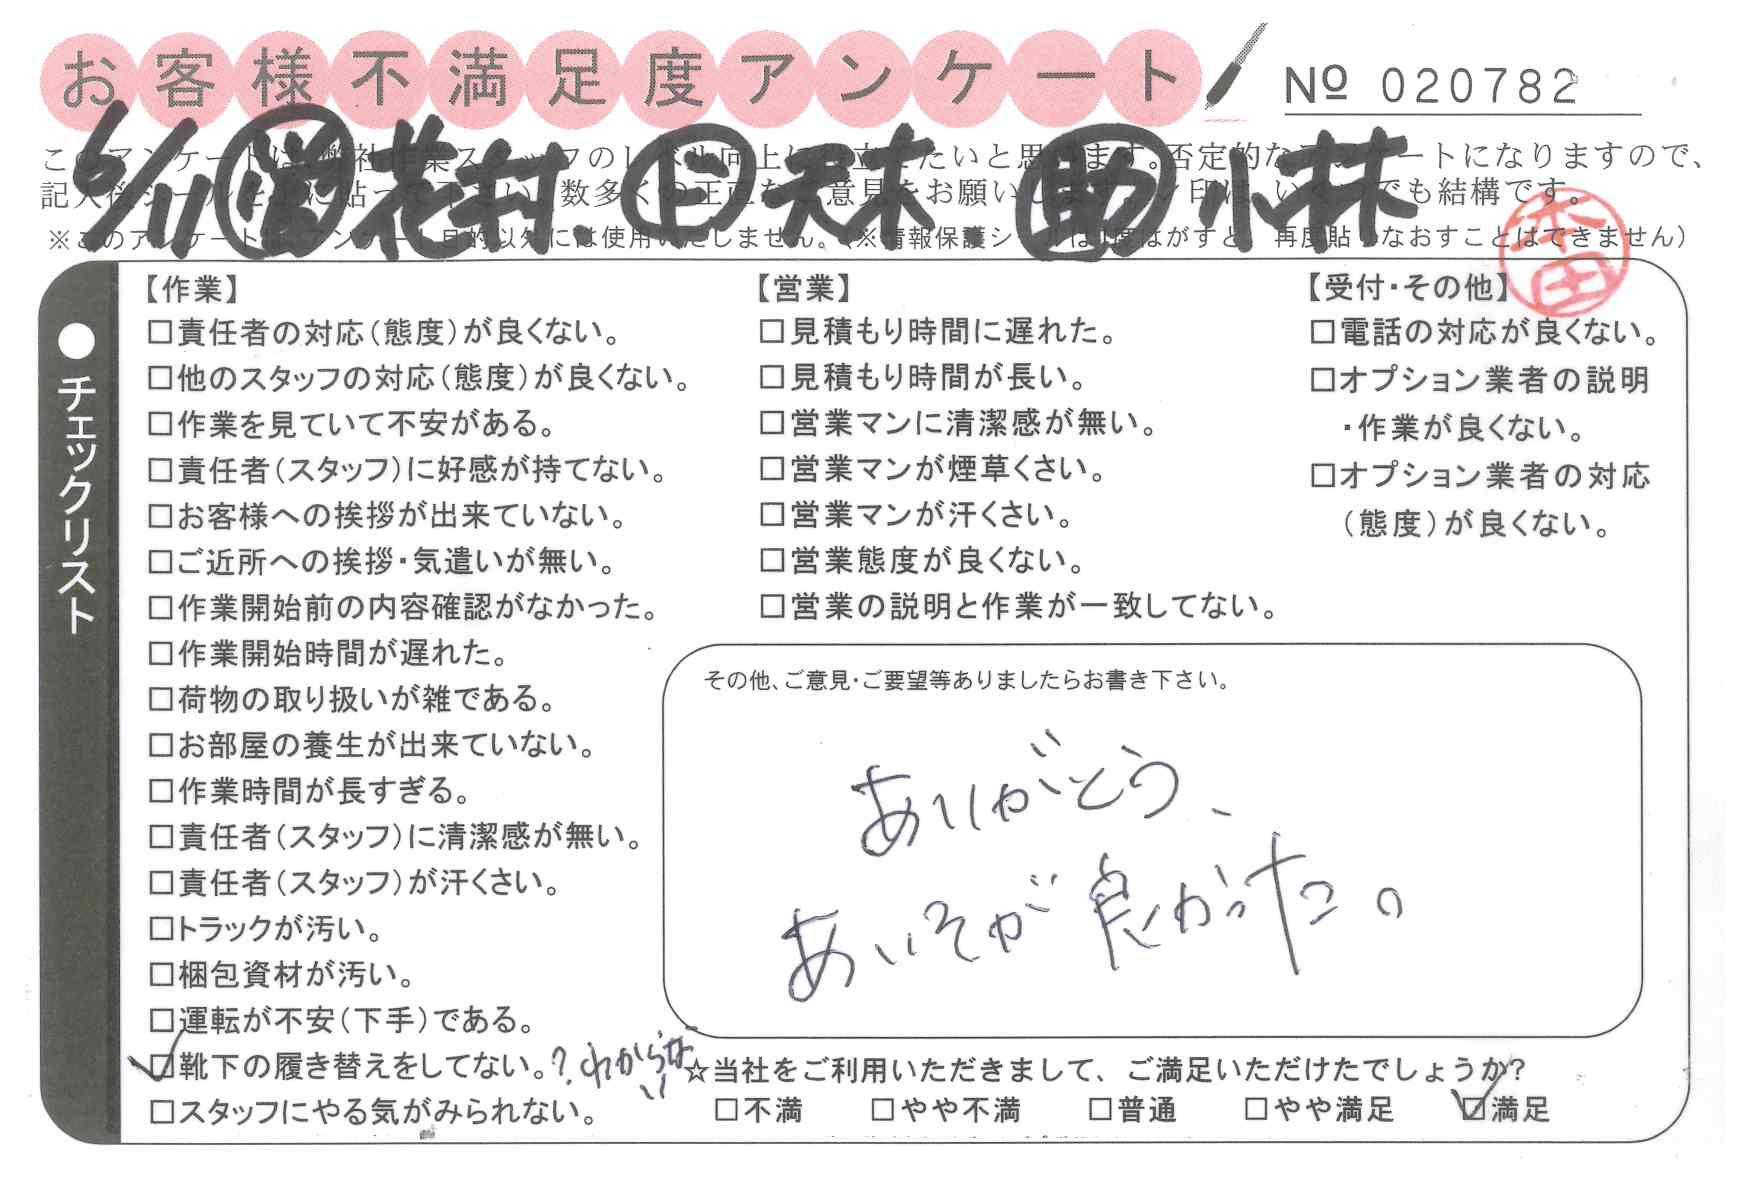 お客様不満足度アンケート
№ 020782
6/11 営 花村 上 天木 助 小林
このアンケートは、弊社作業スタッフのレベル向上に役立てたいと思います。否定的なアンケートになりますので、
記入後シールを上に貼って下さい。数多くの正直なご意見をお願いします。レ印は、いくつでも結構です。
※このアンケートは、アンケート目的以外には使用いたしません。(※情報保護シールは1度はがすと、再度貼りなおすことはできません)
本田
●チェックリスト
【作業】
□責任者の対応(態度)が良くない。
□他のスタッフの対応(態度)が良くない。
□作業を見ていて不安がある。
□責任者(スタッフ)に好感が持てない。
□お客様への挨拶が出来ていない。
□ご近所への挨拶・気遣いが無い。
□作業開始前の内容確認がなかった。
□作業開始時間が遅れた。
□荷物の取り扱いが雑である。
□お部屋の養生が出来ていない。
□作業時間が長すぎる。
□責任者(スタッフ)に清潔感が無い。
□責任者(スタッフ)が汗くさい。
□トラックが汚い。
□梱包資材が汚い。
□運転が不安(下手)である。
☑靴下の履き替えをしてない。?わからない
□スタッフにやる気がみられない。
【営業】
□見積もり時間に遅れた。
□見積もり時間が長い。
□営業マンに清潔感が無い。
□営業マンが煙草くさい。
□営業マンが汗くさい。
□営業態度が良くない。
□営業の説明と作業が一致してない。
【受付・その他】
□電話の対応が良くない。
□オプション業者の説明
・作業が良くない。
□オプション業者の対応
(態度)が良くない。
その他、ご意見・ご要望等ありましたらお書き下さい。
ありがとう、
あいそが良かった。
☆当社をご利用いただきまして、ご満足いただけたでしょうか?
□不満 □やや不満 □普通 □やや満足 ☑満足